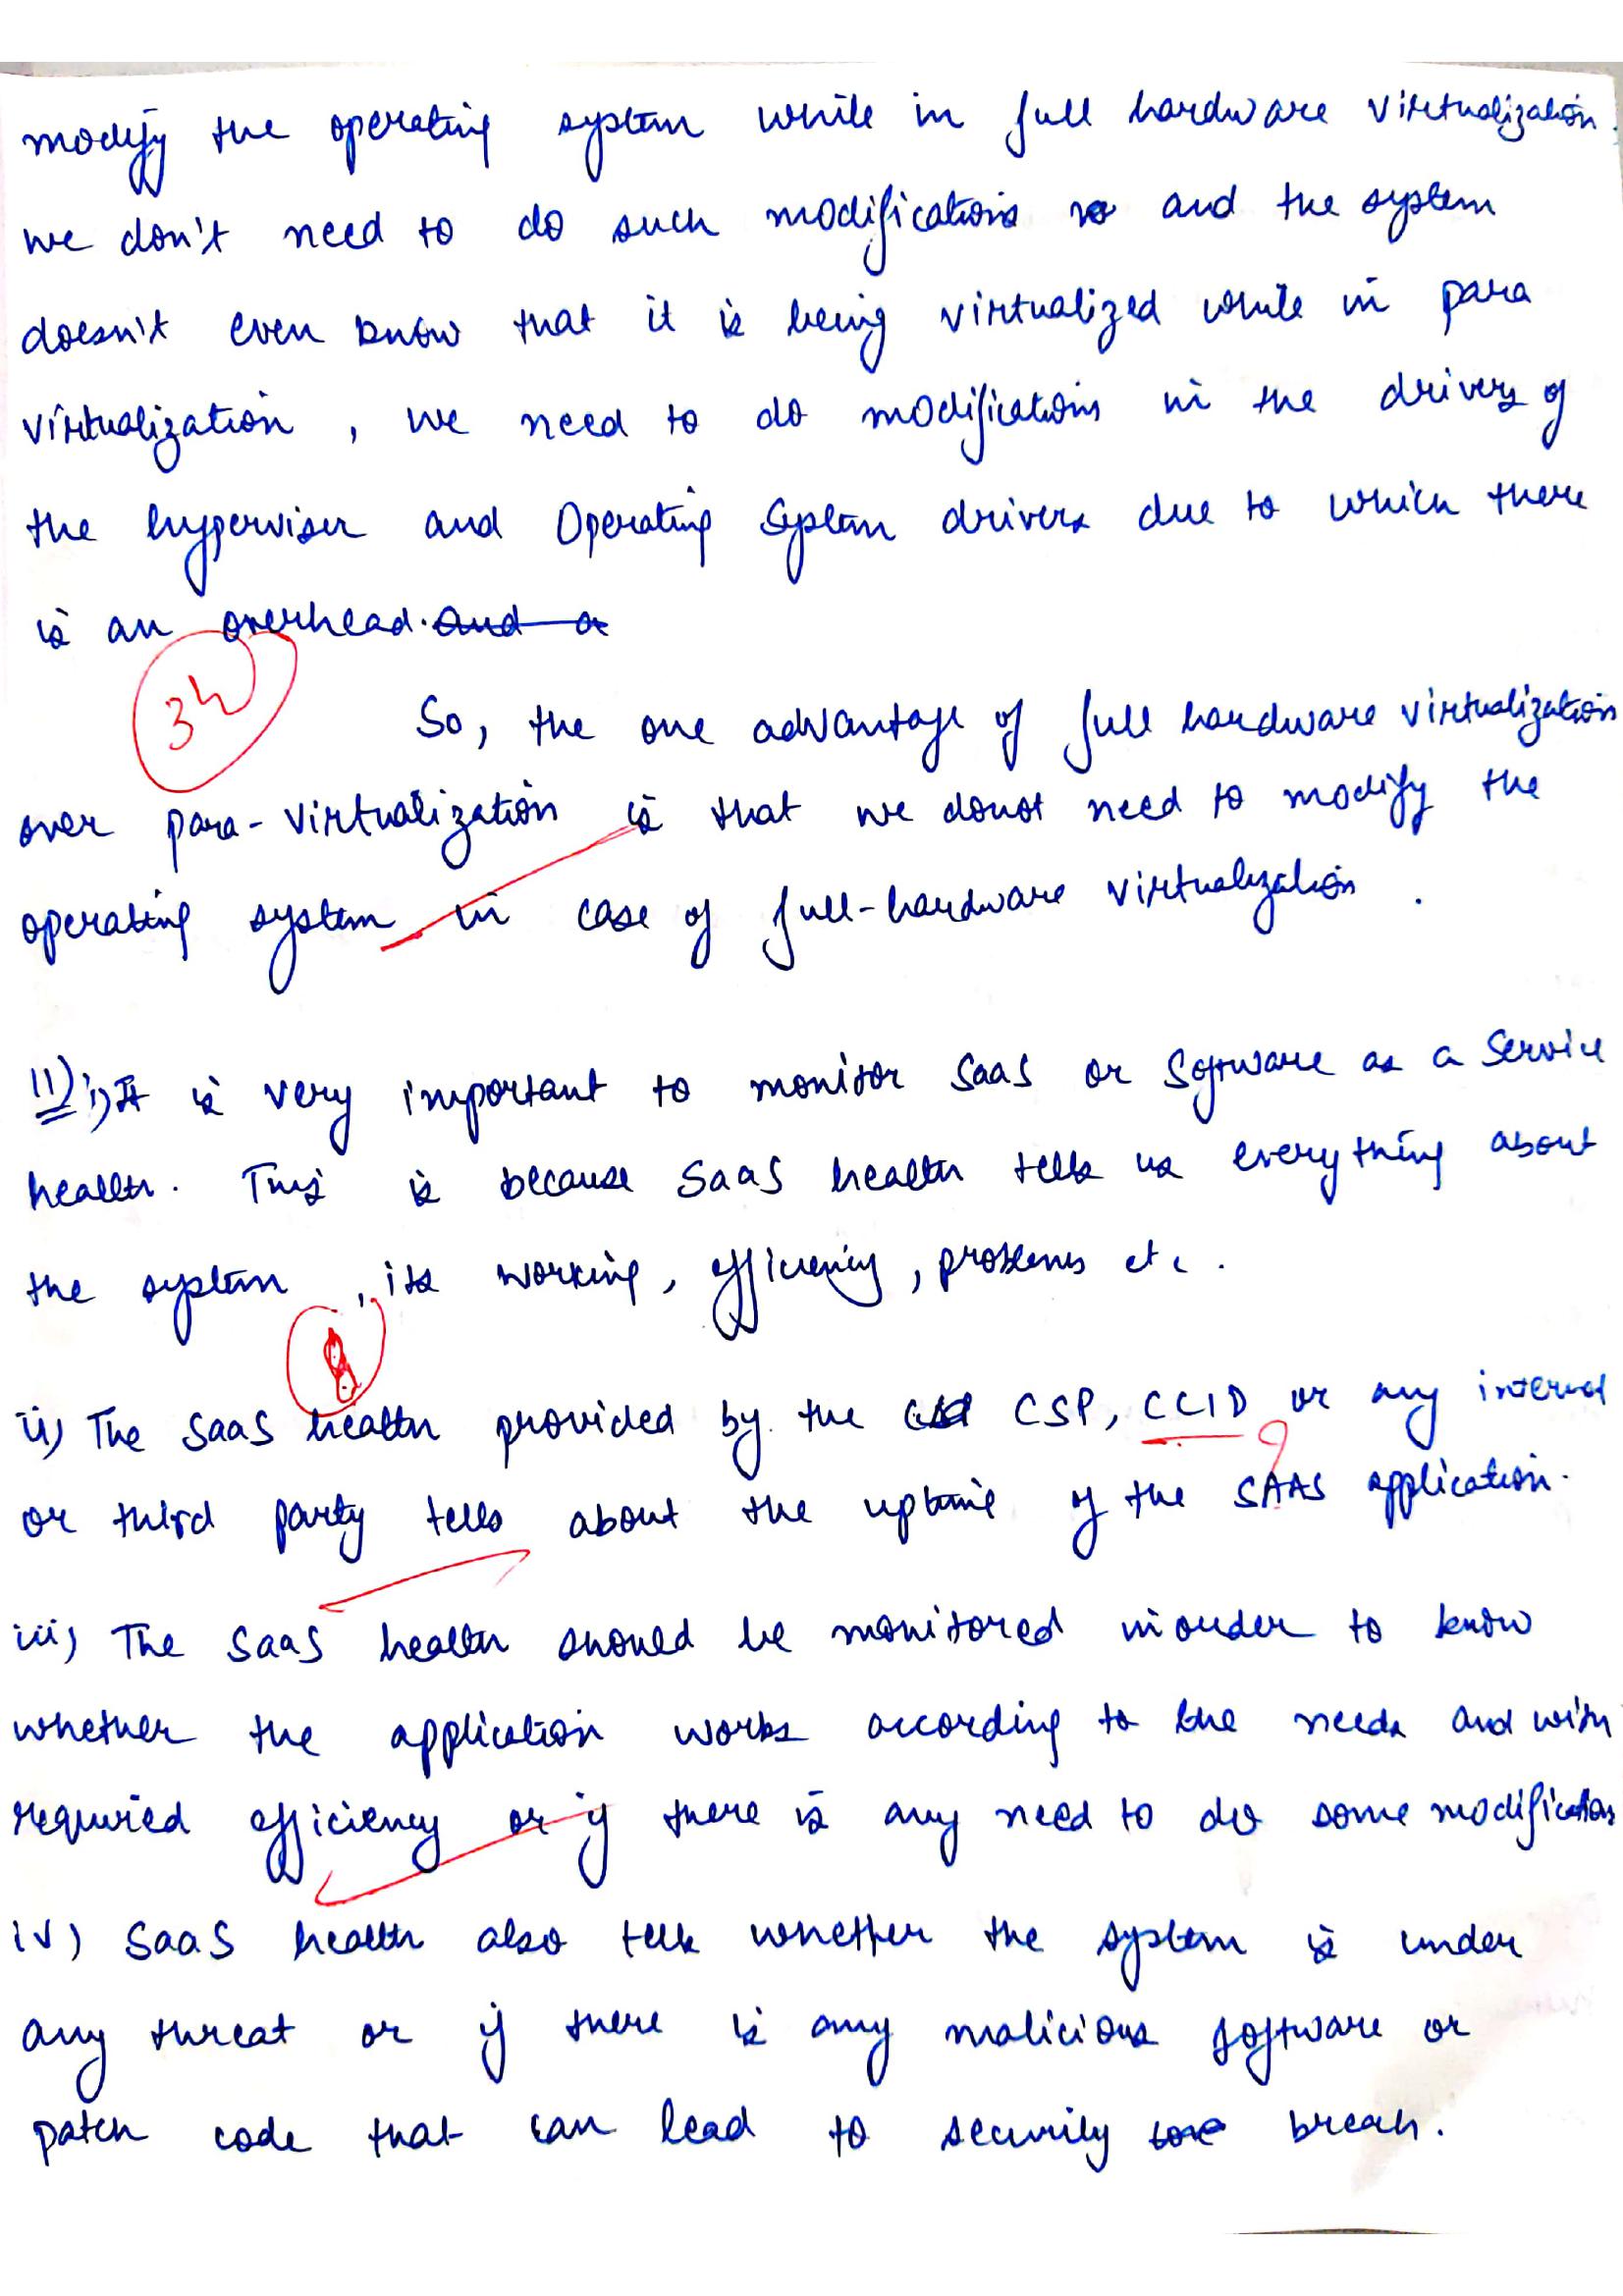 modify the operating system while in full hardware virtualization.
we don't need to do such modifications and the system
doesn't even know that it is being virtualized while in para
virtualization, we need to do modifications in the drivers of
the hyperviser and Operating System drivers due to which there
is an overhead. and a
So, the one advantage of full hardware virtualization
over para-virtualization is that we donot need to modify the
operating system in case of full-hardware virtualization.
11) i) It is very important to monitor SaaS or Software as a Service
health. This is because SaaS health tells us everything about
the system, its working, efficiency, problems etc.
ii) The SaaS health provided by the CSP, CCID or any internal
or third party tells about the uptime of the SAAS application.
iii) The SaaS health should be monitored inorder to know
whether the application works according to the needs and with
required efficiency or if there is any need to do some modifications
iv) SaaS health also tells whether the system is under
any threat or if there is any malicious software or
patch code that can lead to security breach.